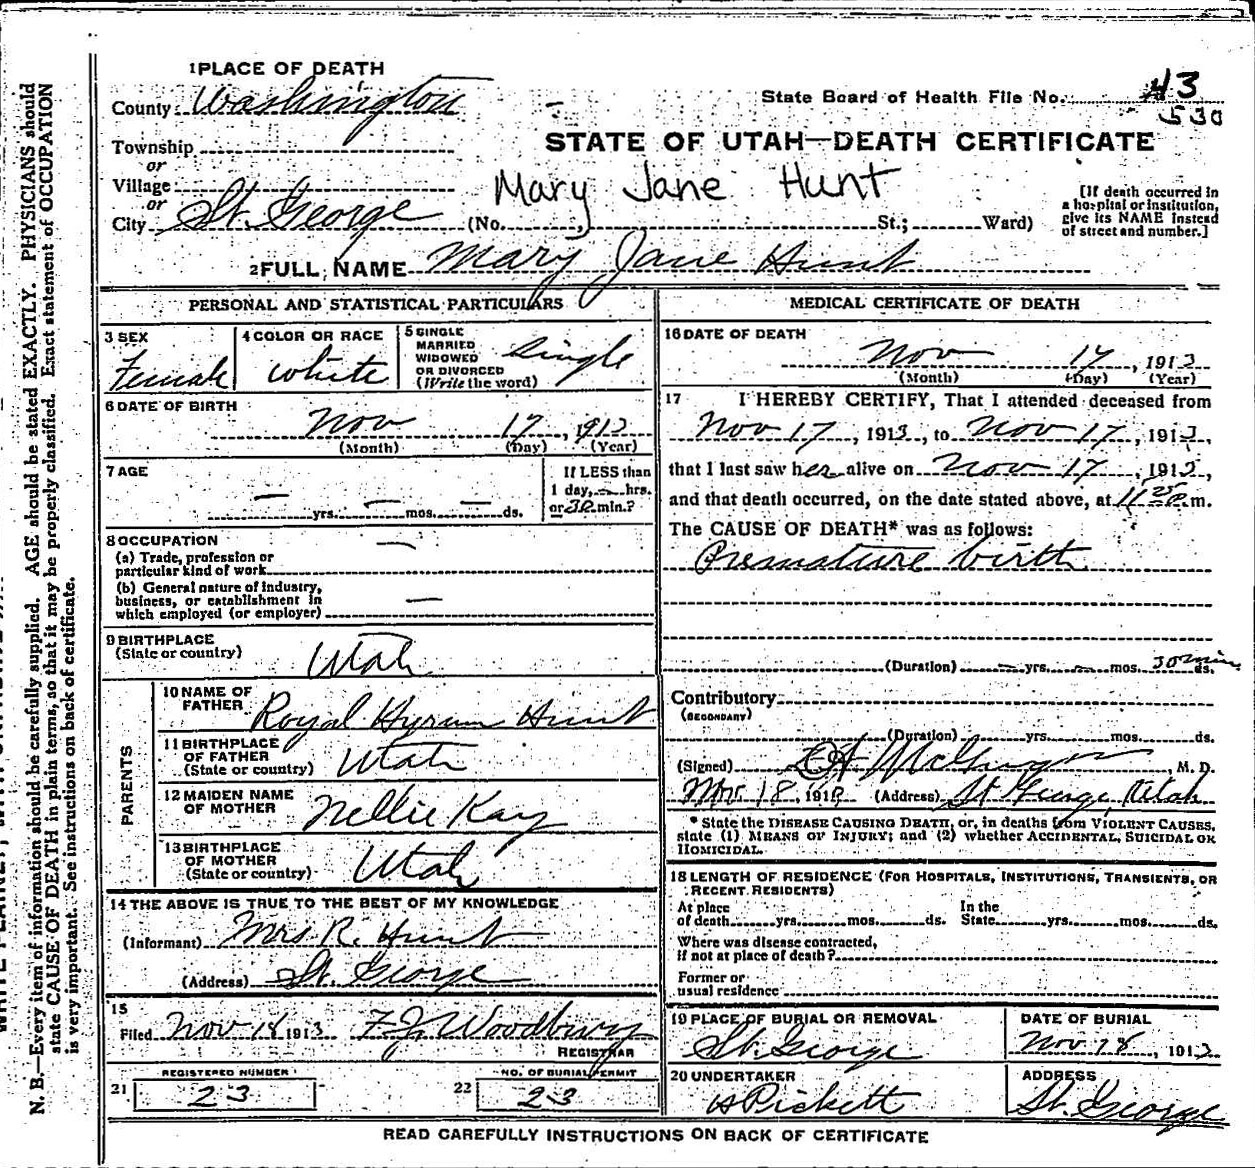 1 PLACE OF DEATH
County Washington
State Board of Health File No. 43
530
STATE OF UTAH—DEATH CERTIFICATE
Township
or
Village
or
City St. George (No. , St.; Ward)
Mary Jane Hunt
[If death occurred in
a hospital or institution,
give its NAME instead
of street and number.]
2 FULL NAME Mary Jane Hunt
PERSONAL AND STATISTICAL PARTICULARS
3 SEX
Female
4 COLOR OR RACE
White
5 SINGLE
MARRIED
WIDOWED
OR DIVORCED
(Write the word)
Single
6 DATE OF BIRTH
Nov 17, 1913
(Month) (Day) (Year)
7 AGE
— yrs. — mos. — ds.
If LESS than
1 day, — hrs.
or 30 min.?
8 OCCUPATION
(a) Trade, profession or
particular kind of work —
(b) General nature of industry,
business, or establishment in
which employed (or employer) —
9 BIRTHPLACE
(State or country)
Utah
PARENTS
10 NAME OF
FATHER
Royal Hyrum Hunt
11 BIRTHPLACE
OF FATHER
(State or country)
Utah
12 MAIDEN NAME
OF MOTHER
Nellie Kay
13 BIRTHPLACE
OF MOTHER
(State or country)
Utah
14 THE ABOVE IS TRUE TO THE BEST OF MY KNOWLEDGE
(Informant) Mrs R. Hunt
(Address) St. George
15
Filed Nov 18 1913 F. J. Woodbury
REGISTRAR
REGISTERED NUMBER
21 23
NO. OF BURIAL PERMIT
22 23
MEDICAL CERTIFICATE OF DEATH
16 DATE OF DEATH
Nov 17, 1913
(Month) (Day) (Year)
17 I HEREBY CERTIFY, That I attended deceased from
Nov 17, 1913, to Nov 17, 1913,
that I last saw her alive on Nov 17, 1913,
and that death occurred, on the date stated above, at 11 25 m.
The CAUSE OF DEATH* was as follows:
Premature birth
(Duration) — yrs. — mos. 30 min ds.
Contributory
(SECONDARY)
(Duration) yrs. mos. ds.
(Signed) , M. D.
Nov. 18, 191 (Address) St George Utah
* State the DISEASE CAUSING DEATH, or, in deaths from VIOLENT CAUSES,
state (1) MEANS OF INJURY; and (2) whether ACCIDENTAL, SUICIDAL OR
HOMICIDAL.
18 LENGTH OF RESIDENCE (FOR HOSPITALS, INSTITUTIONS, TRANSIENTS, OR
RECENT RESIDENTS)
At place
of death yrs. mos. ds.
In the
State yrs. mos. ds.
Where was disease contracted,
if not at place of death?
Former or
usual residence
19 PLACE OF BURIAL OR REMOVAL
St. George
DATE OF BURIAL
Nov 18, 1913
20 UNDERTAKER
Pickett
ADDRESS
St. George
READ CAREFULLY INSTRUCTIONS ON BACK OF CERTIFICATE
N. B.—Every item of information should be carefully supplied. AGE should be stated EXACTLY. PHYSICIANS should
state CAUSE OF DEATH in plain terms, so that it may be properly classified. Exact statement of OCCUPATION
is very important. See instructions on back of certificate.